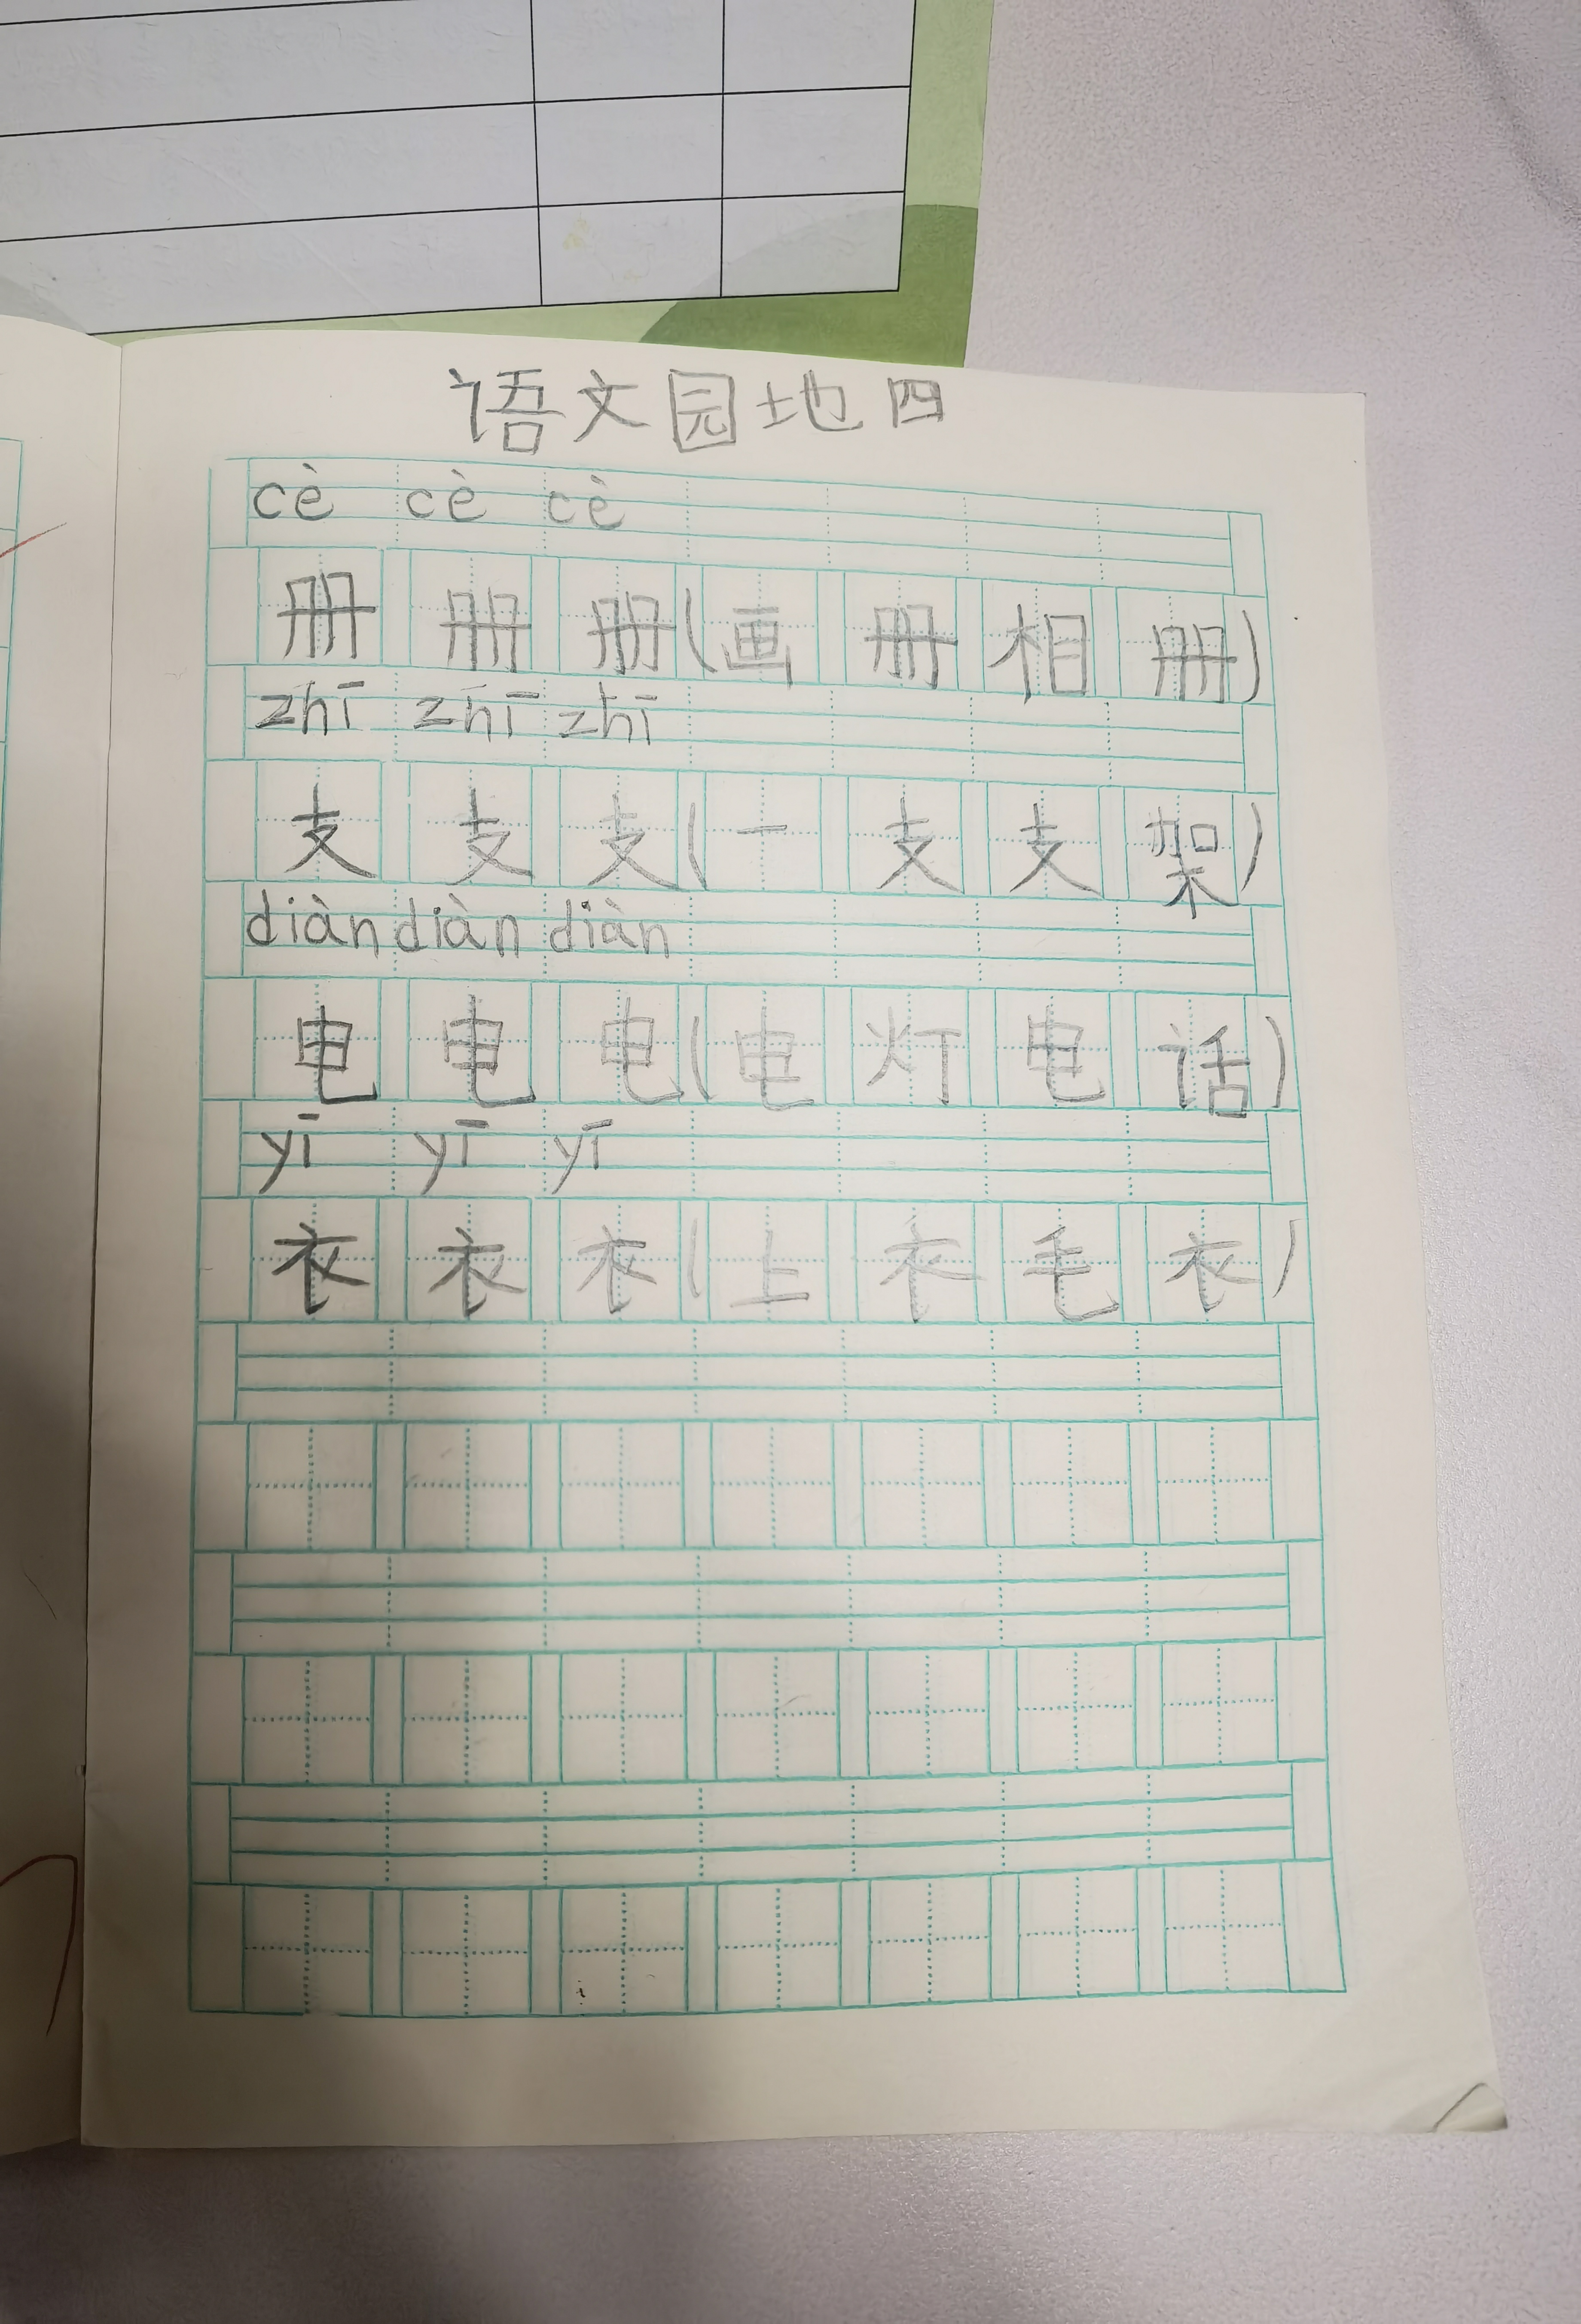 语文园地四
cè cè cè
册册册(画册相册)
zhī zhī zhī
支支支(一支支架)
diàn diàn diàn
电电电(电灯电话)
yī yī yī
衣衣衣(上衣毛衣)